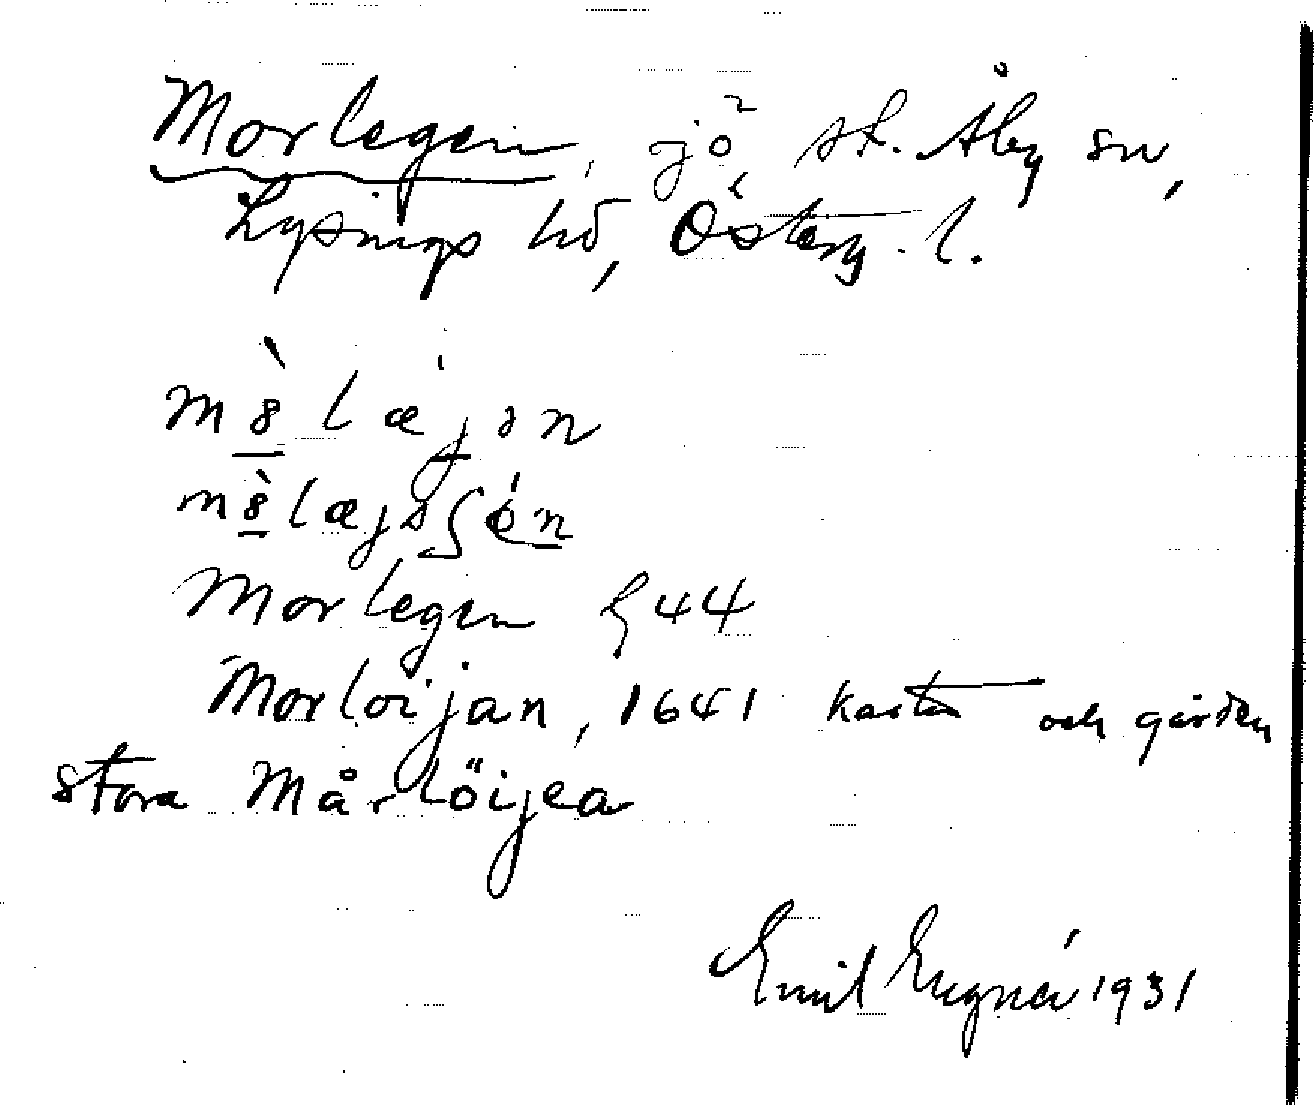 Morlegen, sjö, st. Åby sn,
Lysings hd, Österg. l.
mὸ̱ læjən
mὸ̱læjəʃö́n
Morlegen G44
Morloijan, 1641 karta och gården
stora Mårlöijea
Emil Eugnér 1931